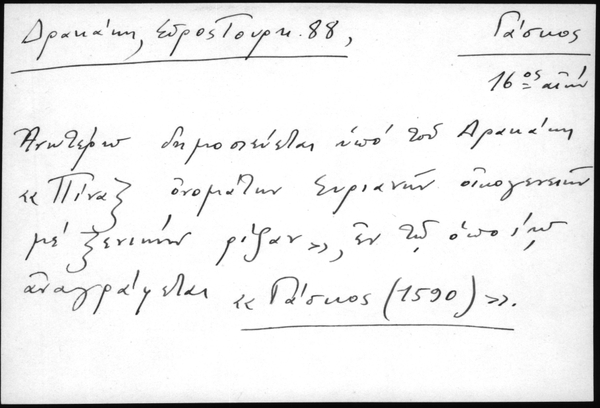 Δρακάκη, Σῦρος Τουρκ. 88,
Γάσκος
16ος αἰών
Ἀνωτέρω δημοσιεύεται ὑπό τοῦ Δρακάκη
«Πίναξ ὀνομάτων Συριανῶν οἰκογενειῶν
μέ ξενικήν ρίζαν», ἐν τῷ ὁποίῳ
ἀναγράφεται «Γάσκος (1590)».